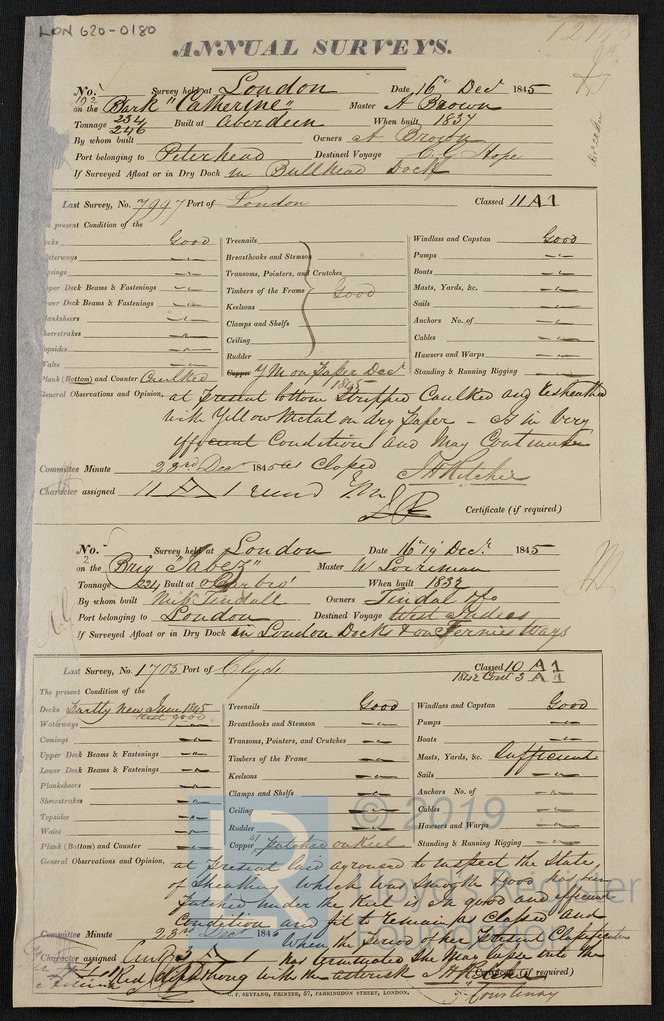 LON 620-0180
ANNUAL SURVEYS.
No. 192 Survey held at London Date 16th Decr 1845
on the Bark "Catherine" Master A Brown
Tonnage 234 246 Built at Aberdeen When built 1837
By whom built Owners A Brown
Port belonging to Peterhead Destined Voyage C. G Hope
If Surveyed Afloat or in Dry Dock in Bullhead Dock
Last Survey, No. 7997 Port of London Classed 11 A1
present Condition of the
Good Treenails Windlass and Capstan Good
Breasthooks and Stemson Pumps
Transoms, Pointers, and Crutches Boats
Upper Deck Beams & Fastenings Timbers of the Frame Good Masts, Yards, &c.
Lower Deck Beams & Fastenings Keelsons Sails
Planksheers Clamps and Shelfs Anchors No. of
Sheerstrakes Ceiling Cables
Topsides Rudder Hawsers and Warps
Wales Copper YM on Paper Decr 1845 Standing & Running Rigging
Plank (Bottom) and Counter Caulked
General Observations and Opinion, at Present bottom Stripped Caulked and resheathed
with Yellow Metal on dry Paper – Is in Very
efficient Condition and May Continue
Committee Minute 23rd Decr 1845 as Classed
Character assigned 11 A 1 J H Ritchie
Certificate (if required)
No. 2 Survey held at London Date 16th 19th Decr. 1845
on the Brig "Jabez" Master W
Tonnage 224 Built at Scarbro' When built 1832
By whom built Tindall Owners Tindal & Co
Port belonging to London Destined Voyage West Indies
If Surveyed Afloat or in Dry Dock in London Docks & on Fernies Ways
Last Survey, No. 1705 Port of Clyde Classed 10 A1
1842 Cont 3 A 1
The present Condition of the
Decks Partly New June 1845 rest good Treenails Good Windlass and Capstan Good
Waterways Breasthooks and Stemson Pumps
Comings Transoms, Pointers, and Crutches Boats
Upper Deck Beams & Fastenings Timbers of the Frame Masts, Yards, &c. Sufficient
Lower Deck Beams & Fastenings Keelsons Sails
Planksheers Clamps and Shelfs Anchors No. of
Sheerstrakes Ceiling Cables
Topsides Rudder Hawsers and Warps
Wales Copper patched on Keel Standing & Running Rigging
Plank (Bottom) and Counter
General Observations and Opinion, at Present laid aground to inspect the State
of Sheathing which was Smooth & good has been
Patched under the Keel is in good and efficient
Condition and fit to remain as Classed and
Committee Minute 23rd Decr 1845 When the period of her Present Classification
Character assigned Cont 3 A 1 has terminated She May lapse into the
Red diphthong with the asterisk
Certificate (if required)
Courtenay
C. F. SEYFANG, PRINTER, 57, FARRINGDON STREET, LONDON.
© 2019
Lloyd's Register
Foundation